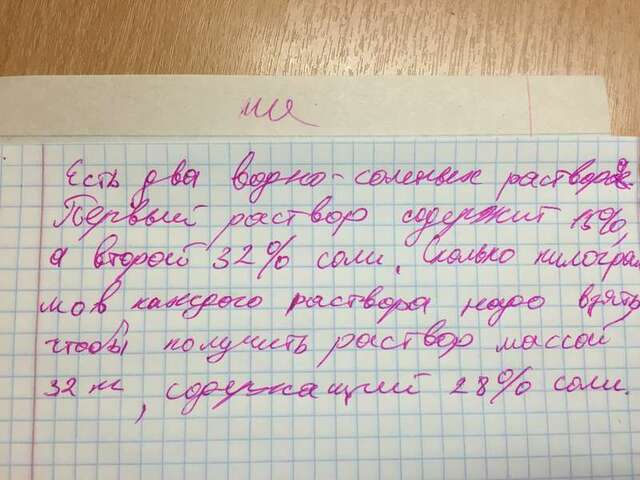 Есть два водно-соленых раствора.
Первый раствор содержит 15%,
а второй 32% соли. Сколько килограм
мов каждого раствора надо взять,
чтобы получить раствор массой
32 кг, содержащий 28% соли.